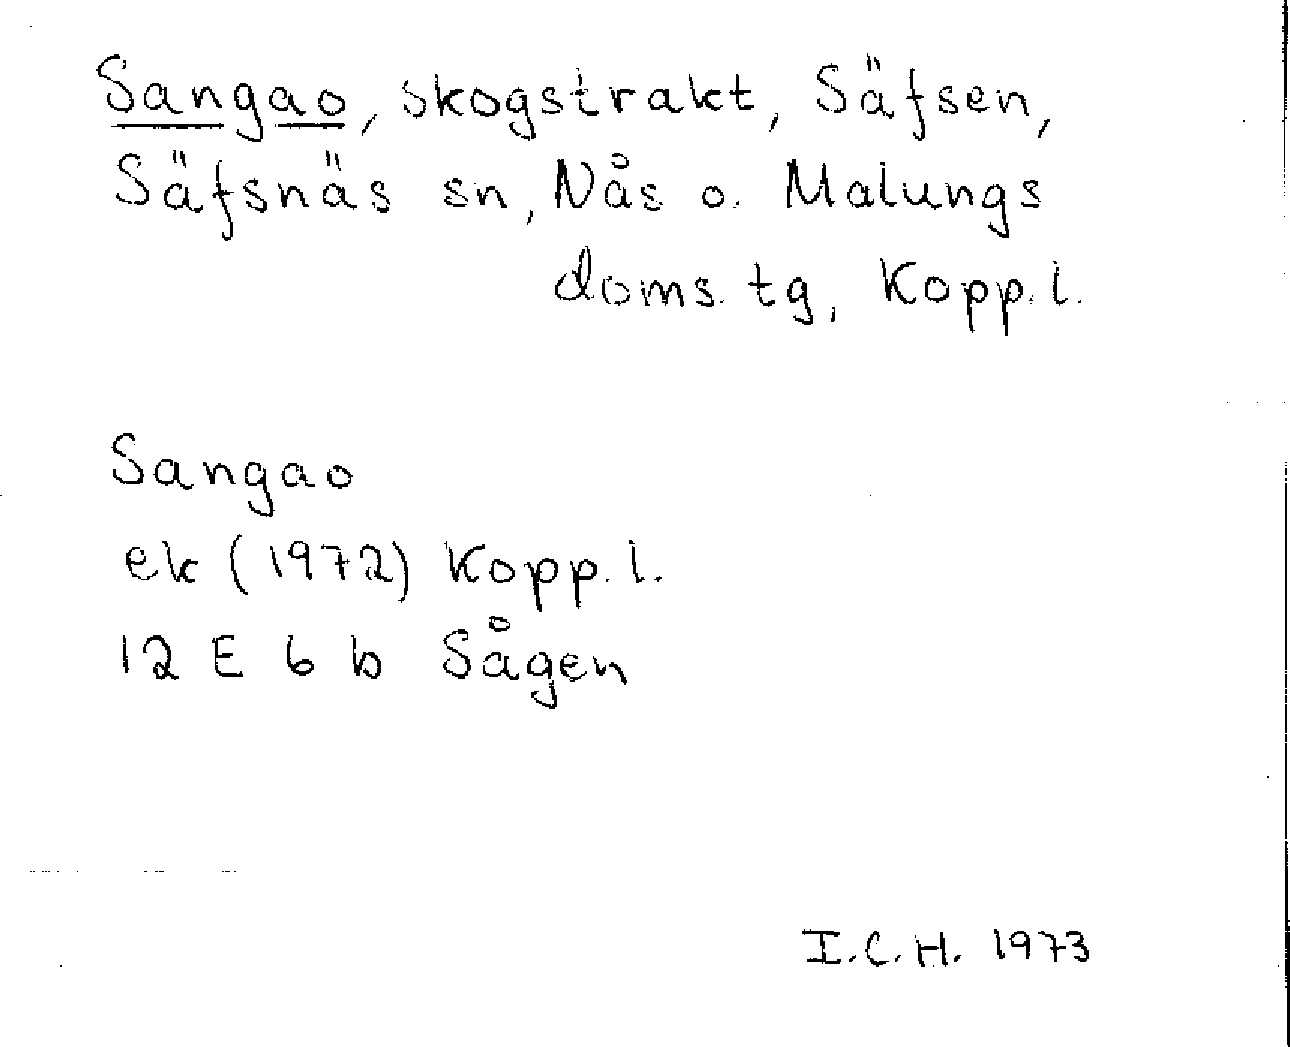 Sangao, skogstrakt, Säfsen,
Säfsnäs sn, Nås o. Malungs
doms. tg, Kopp. l.
Sangao
ek (1972) Kopp. l.
12 E 6 b Sågen
I.C.H. 1973